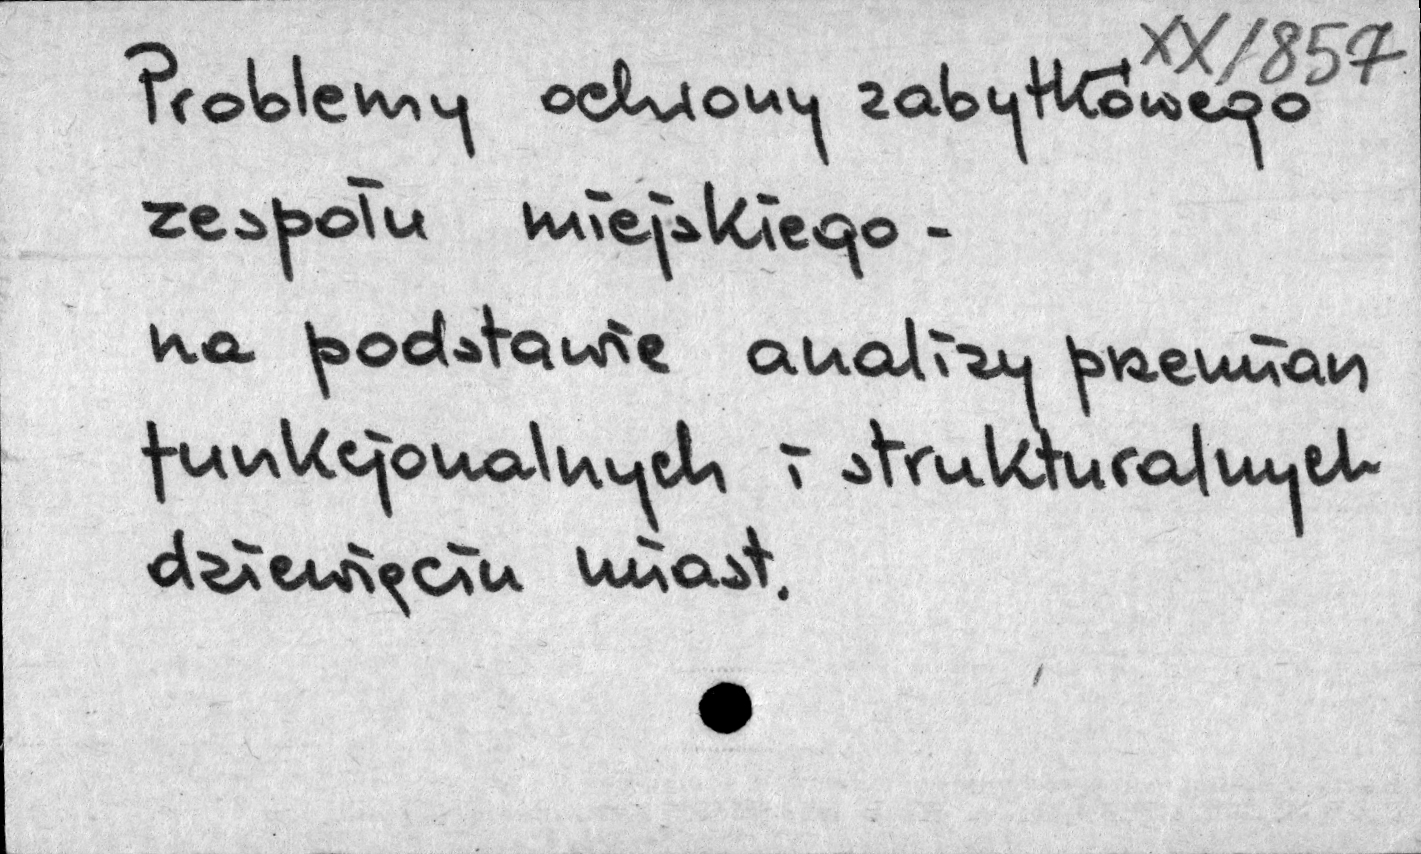 XX/857
Problemy ochrony zabytkowego
zespołu miejskiego -
na podstawie analizy przemian
funkcjonalnych i strukturalnych
dziewięciu miast.